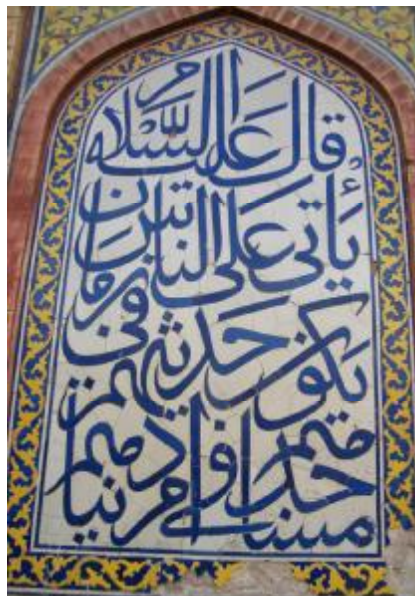 قال عليه السلام
يأتى على الناس زمان
يكون حديثهم فى
مساجدهم فى أمر دنياهم